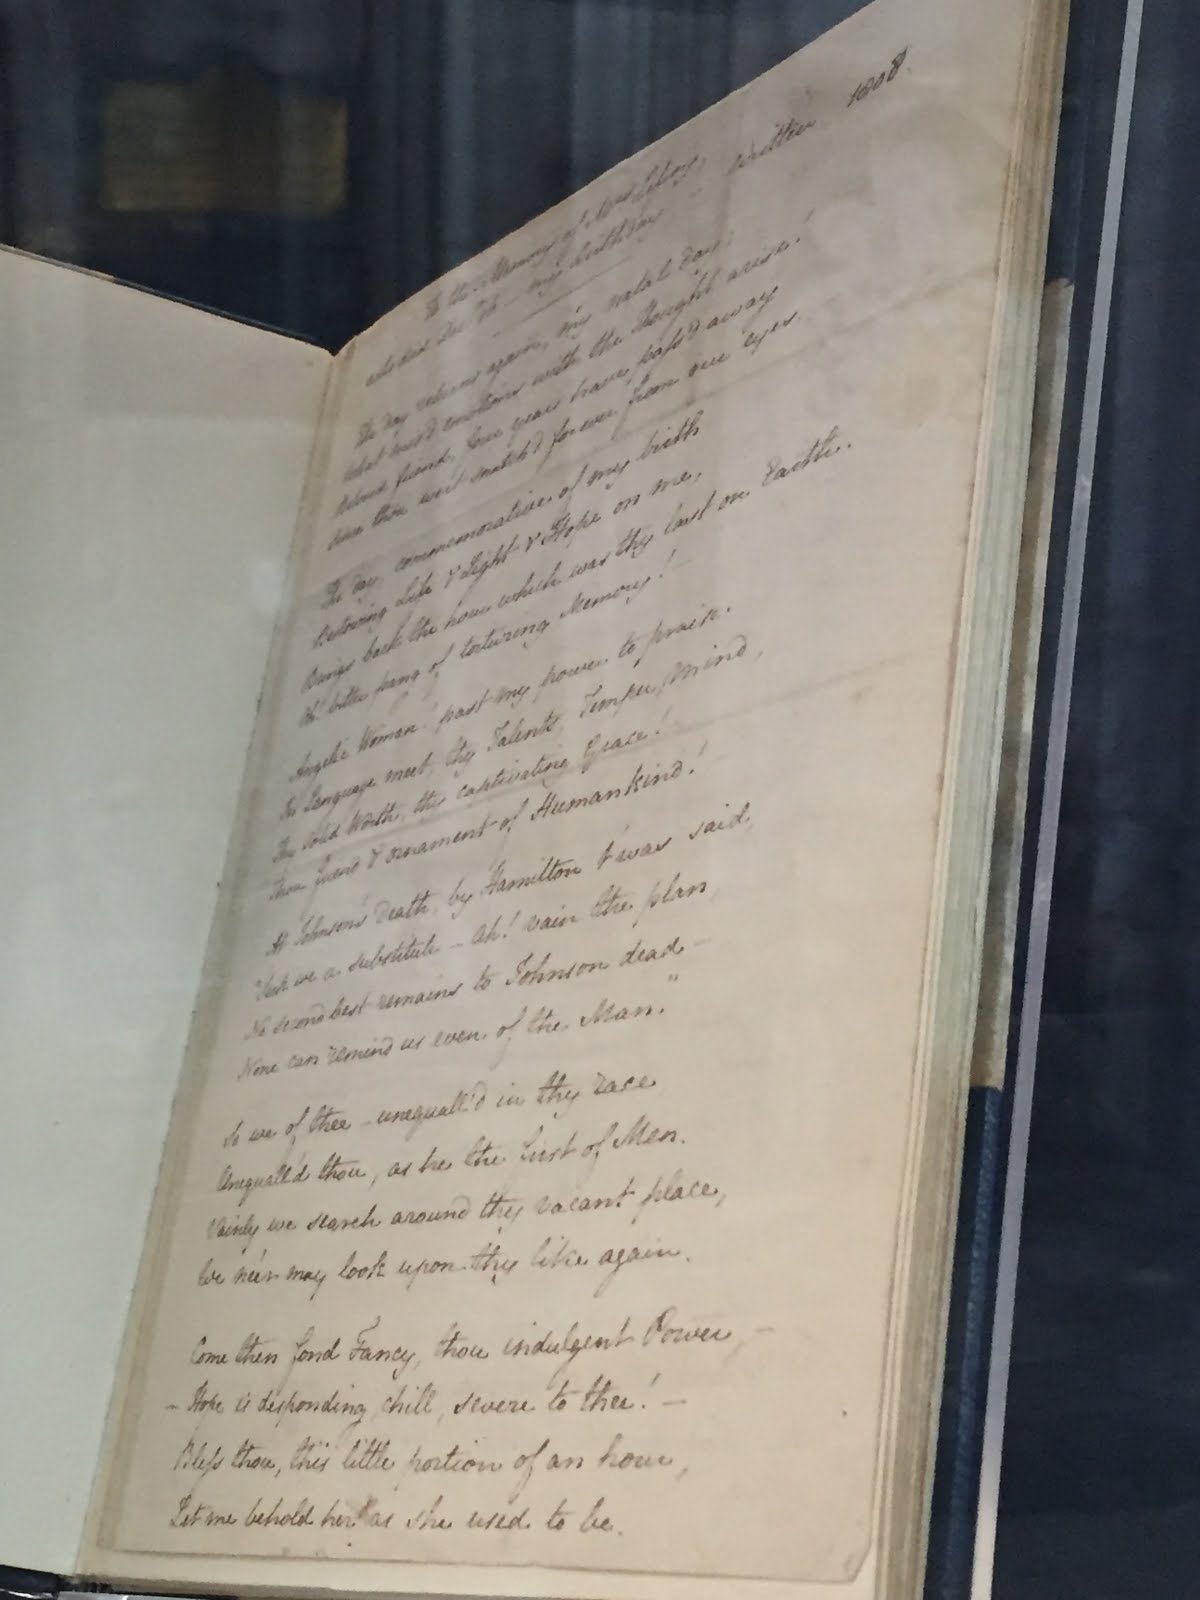 To the Memory of Mrs Lefroy,
who died Dec 16 - my birthday - written 1808.
The day returns again, my natal day;
What mix'd emotions with the thought arise!
Beloved friend, four years have pass'd away
Since thou wert snatch'd for ever from our eyes.
The day, commemorative of my birth
Bestowing Life & Light & Hope on me,
Brings back the hour which was thy last on Earth.
Oh! bitter pang of torturing Memory!—
Angelic Woman! past my power to praise
In Language meet, thy Talents, Temper, Mind,
Thy solid Worth, thy captivating Grace!
Thou friend & ornament of Humankind!
At Johnson's death, by Hamilton t'was said,
"Seek we a substitute – Ah! vain the plan,
No second best remains to Johnson dead –
None can remind us even of the Man."
So we of thee – unequall'd in thy race
Unequall'd thou, as he the first of Men.
Vainly we search around thy vacant place,
We ne'er may look upon thy like again.
Come then fond Fancy, thou indulgent Power, –
– Hope is desponding, chill, severe to thee! –
Bless thou, this little portion of an hour,
Let me behold her as she used to be.